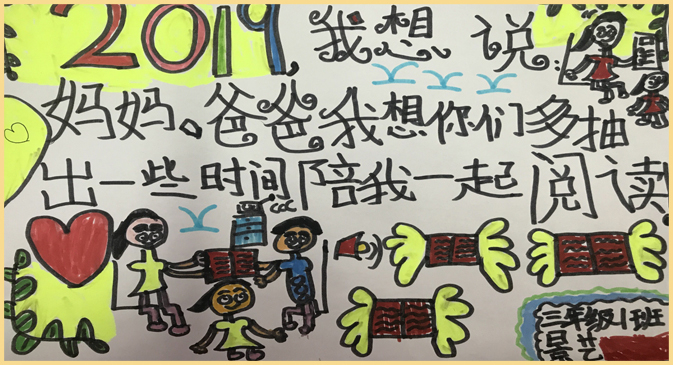 2019,我想说:
妈妈。爸爸,我想你们多抽
出一些时间陪我一起阅读。
三年级1班
景艺